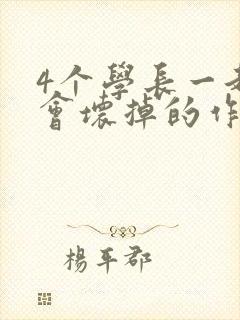 4个學長一
會壞掉的作
楊平郡